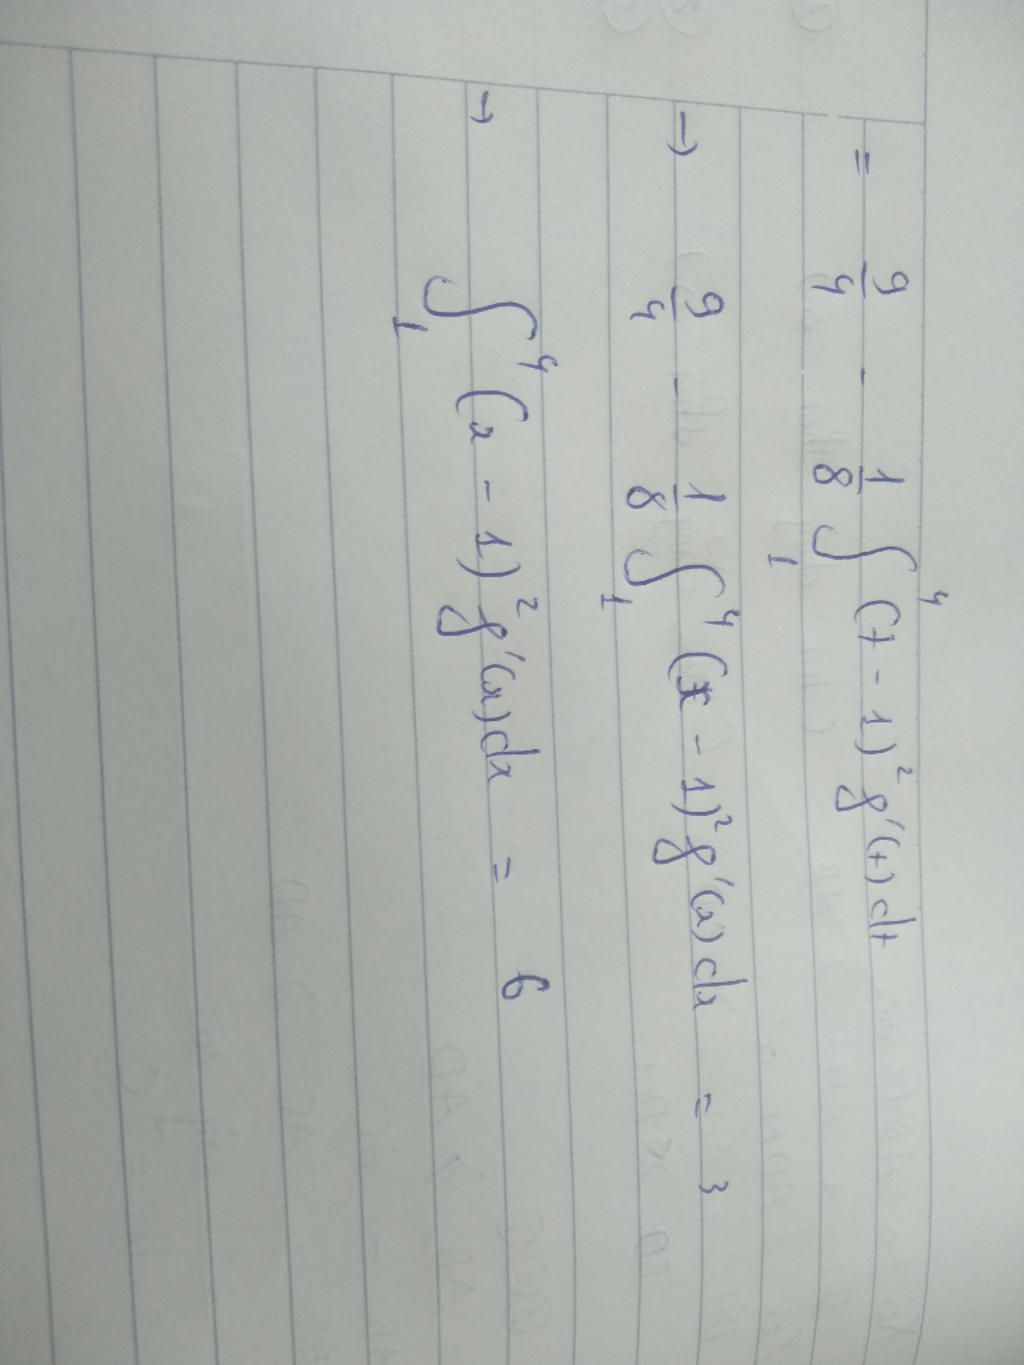 = 9/4 - 1/8 ∫₁⁴ (t - 1)² g'(t) dt
→ 9/4 - 1/8 ∫₁⁴ (x - 1)² g'(x) dx = 3
→ ∫₁⁴ (x - 1)² g'(x) dx = 6